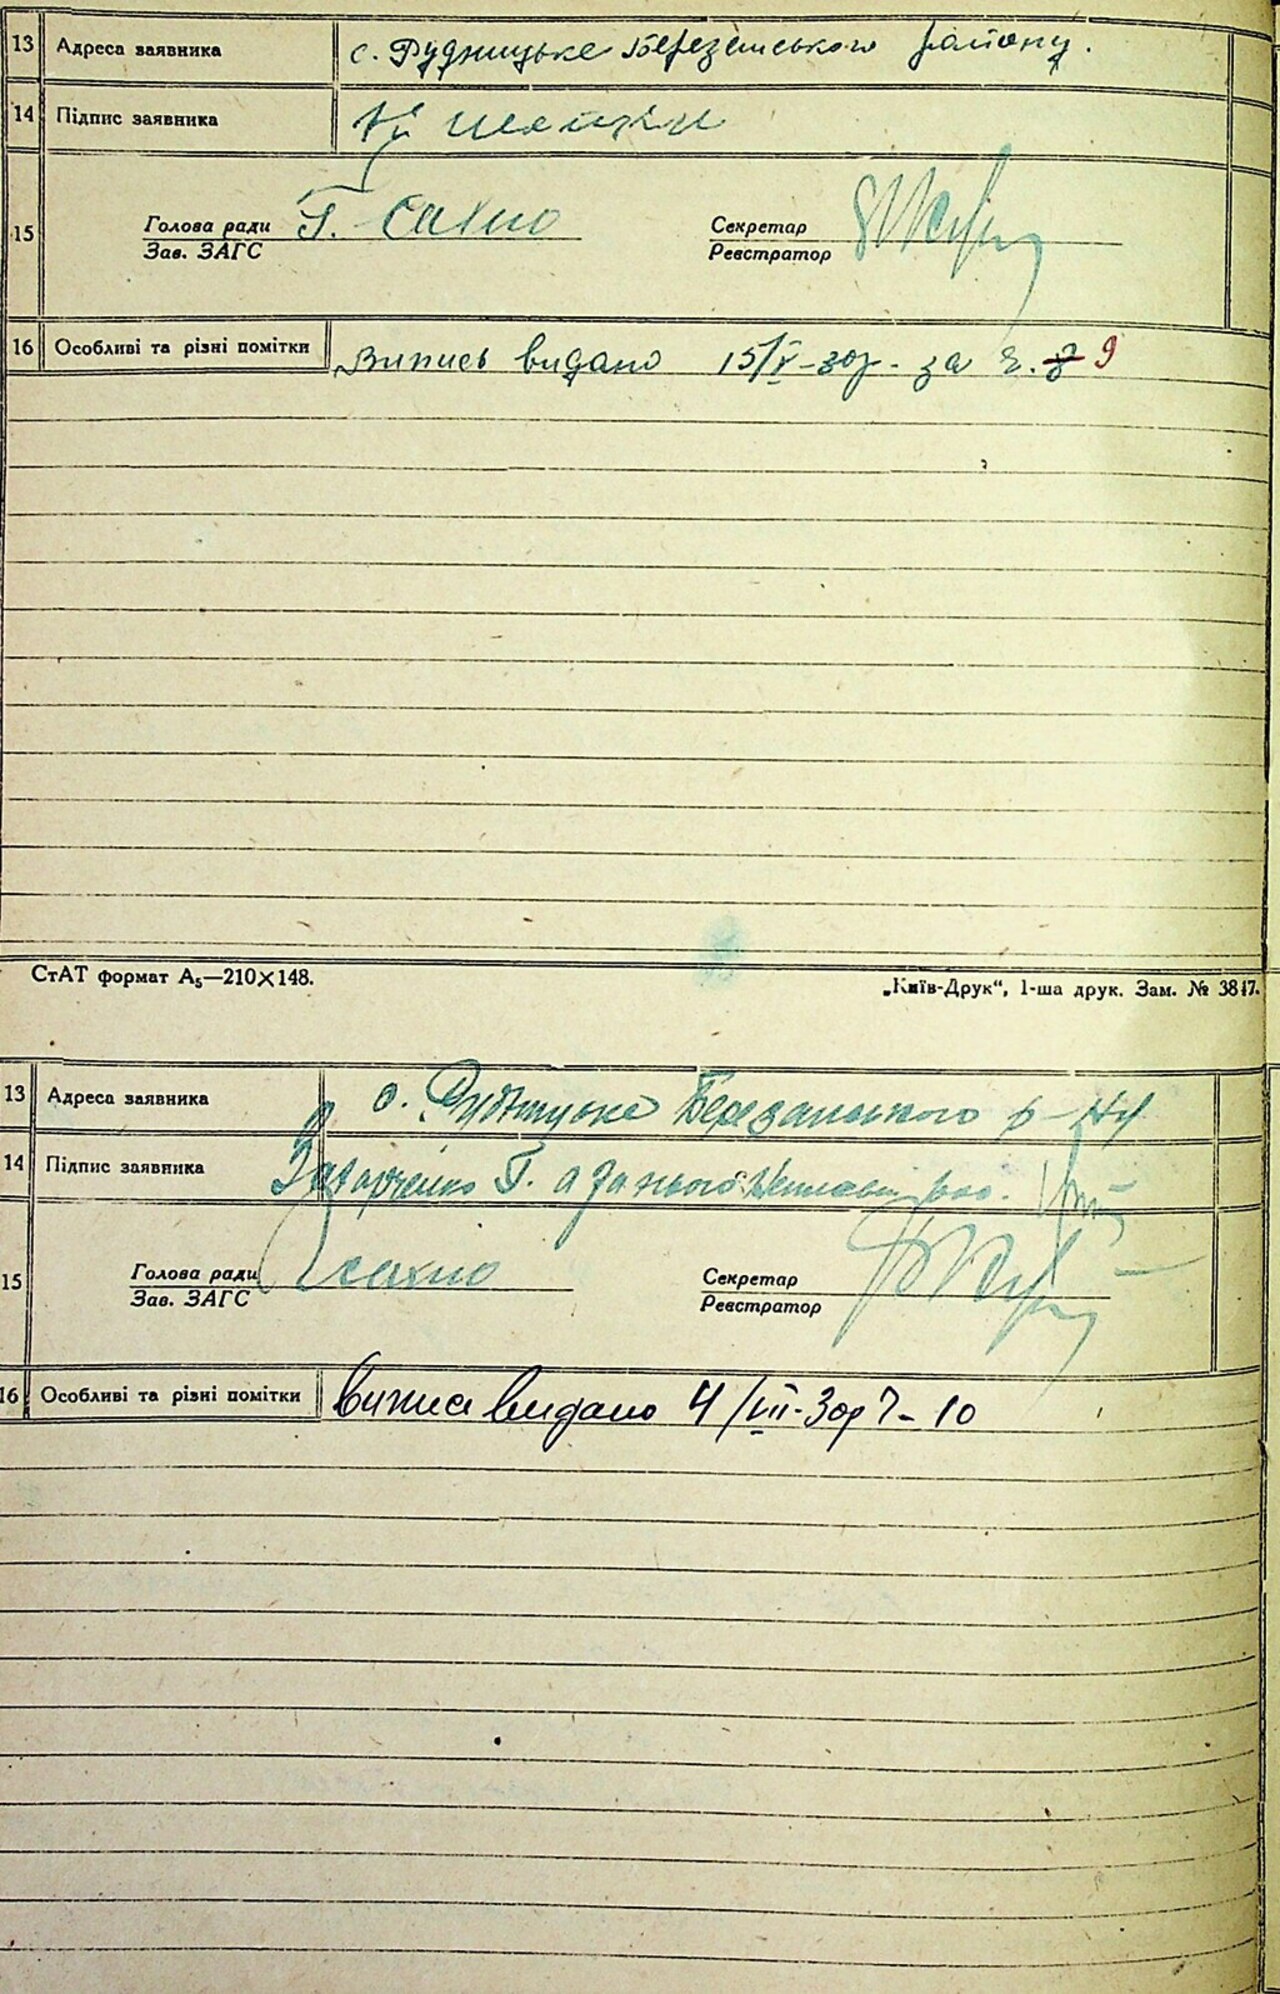 13 Адреса заявника с. Рудницьке Березанського району.
14 Підпис заявника
15 Голова ради Г. Сахно Секретар
Зав. ЗАГС Реєстратор
16 Особливі та різні помітки Випись видано 15/V-30р. за ч. 9
СтАТ формат А5—210×148. „Київ-Друк“, 1-ша друк. Зам. № 3817.
13 Адреса заявника с. Рудницьке Березанського р-ну
14 Підпис заявника Захарченко Г. а за нього
15 Голова ради Сахно Секретар
Зав. ЗАГС Реєстратор
16 Особливі та різні помітки виписа видано 4/VII-30р ч-10